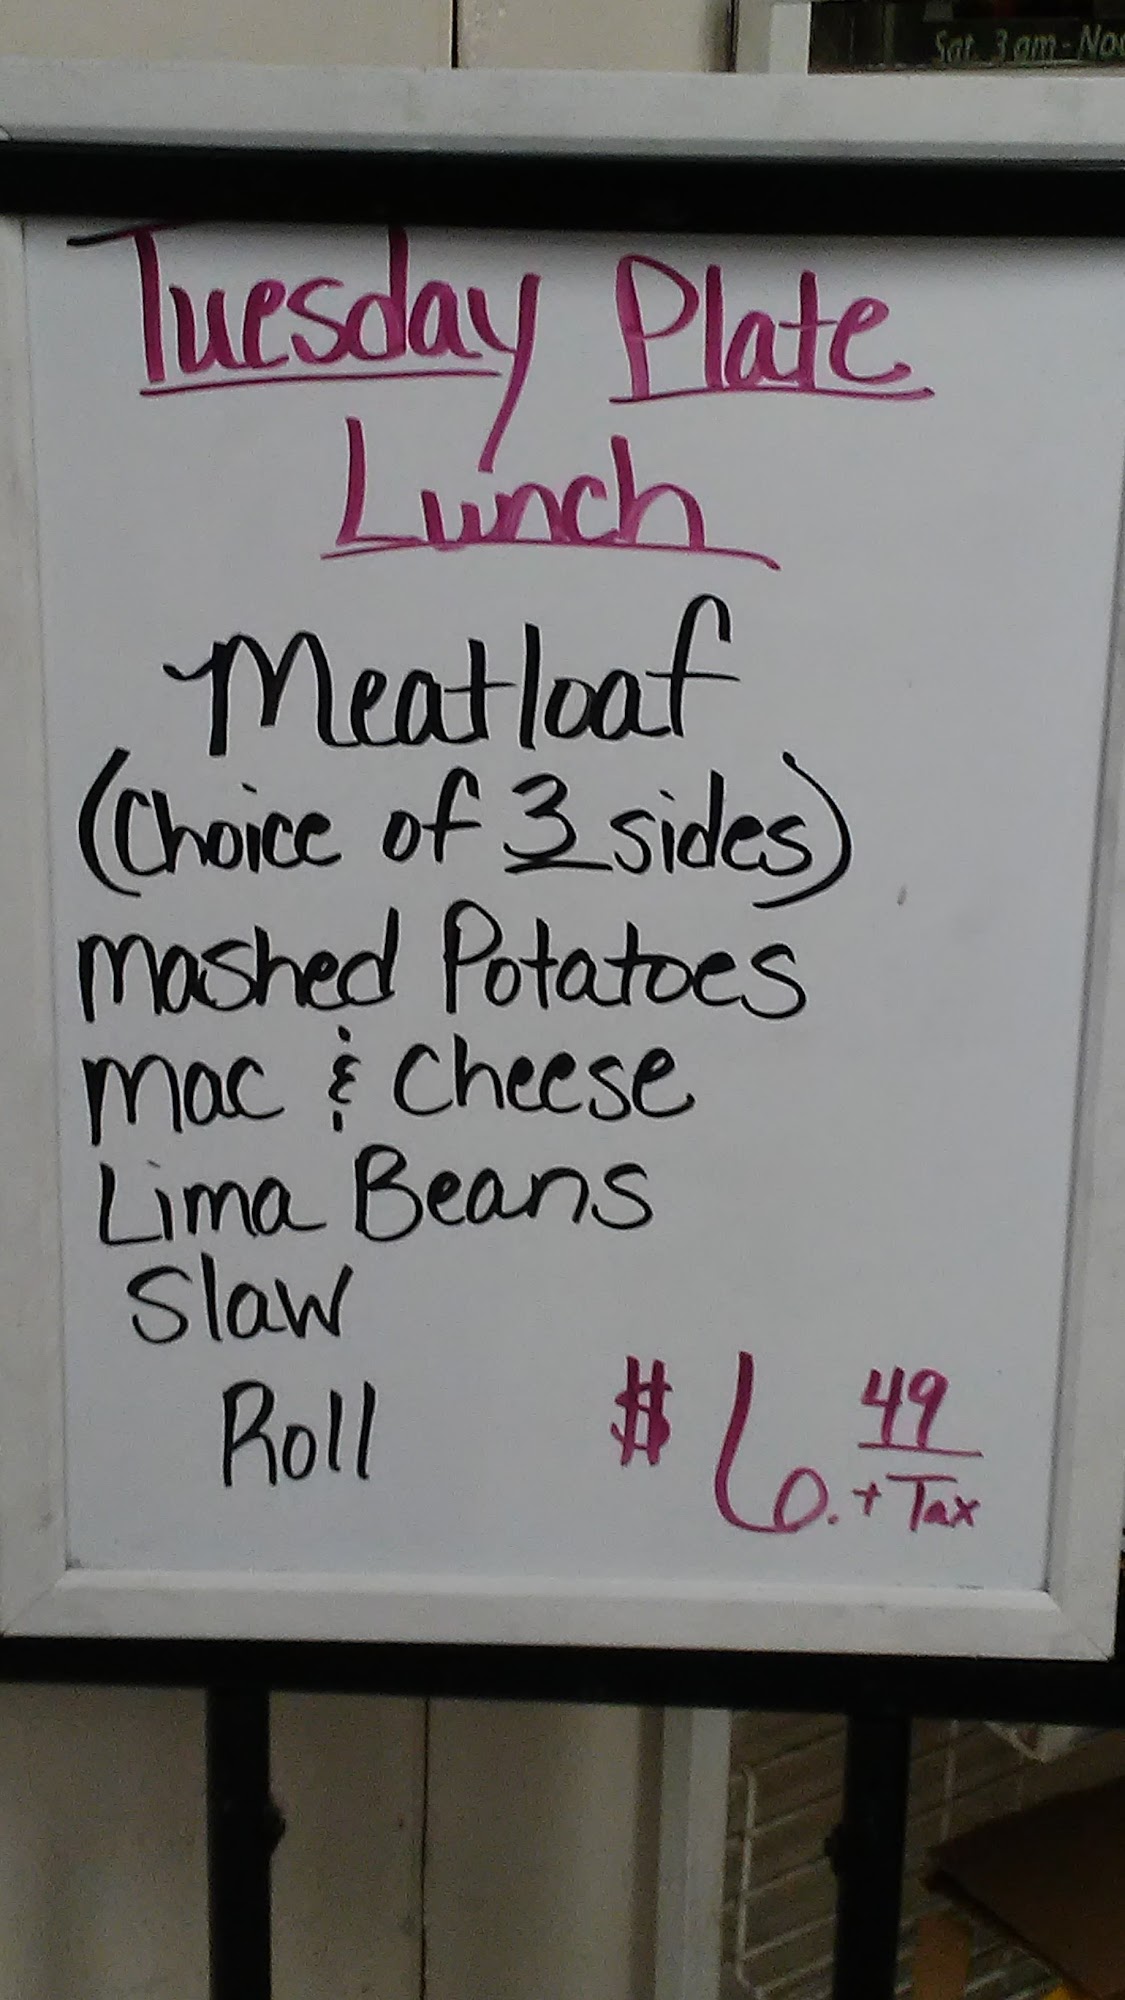 Sat. 3am-Noo
Tuesday Plate
Lunch
Meatloaf
(Choice of 3 sides)
Mashed Potatoes
Mac & Cheese
Lima Beans
Slaw
Roll
$6.49
+ Tax